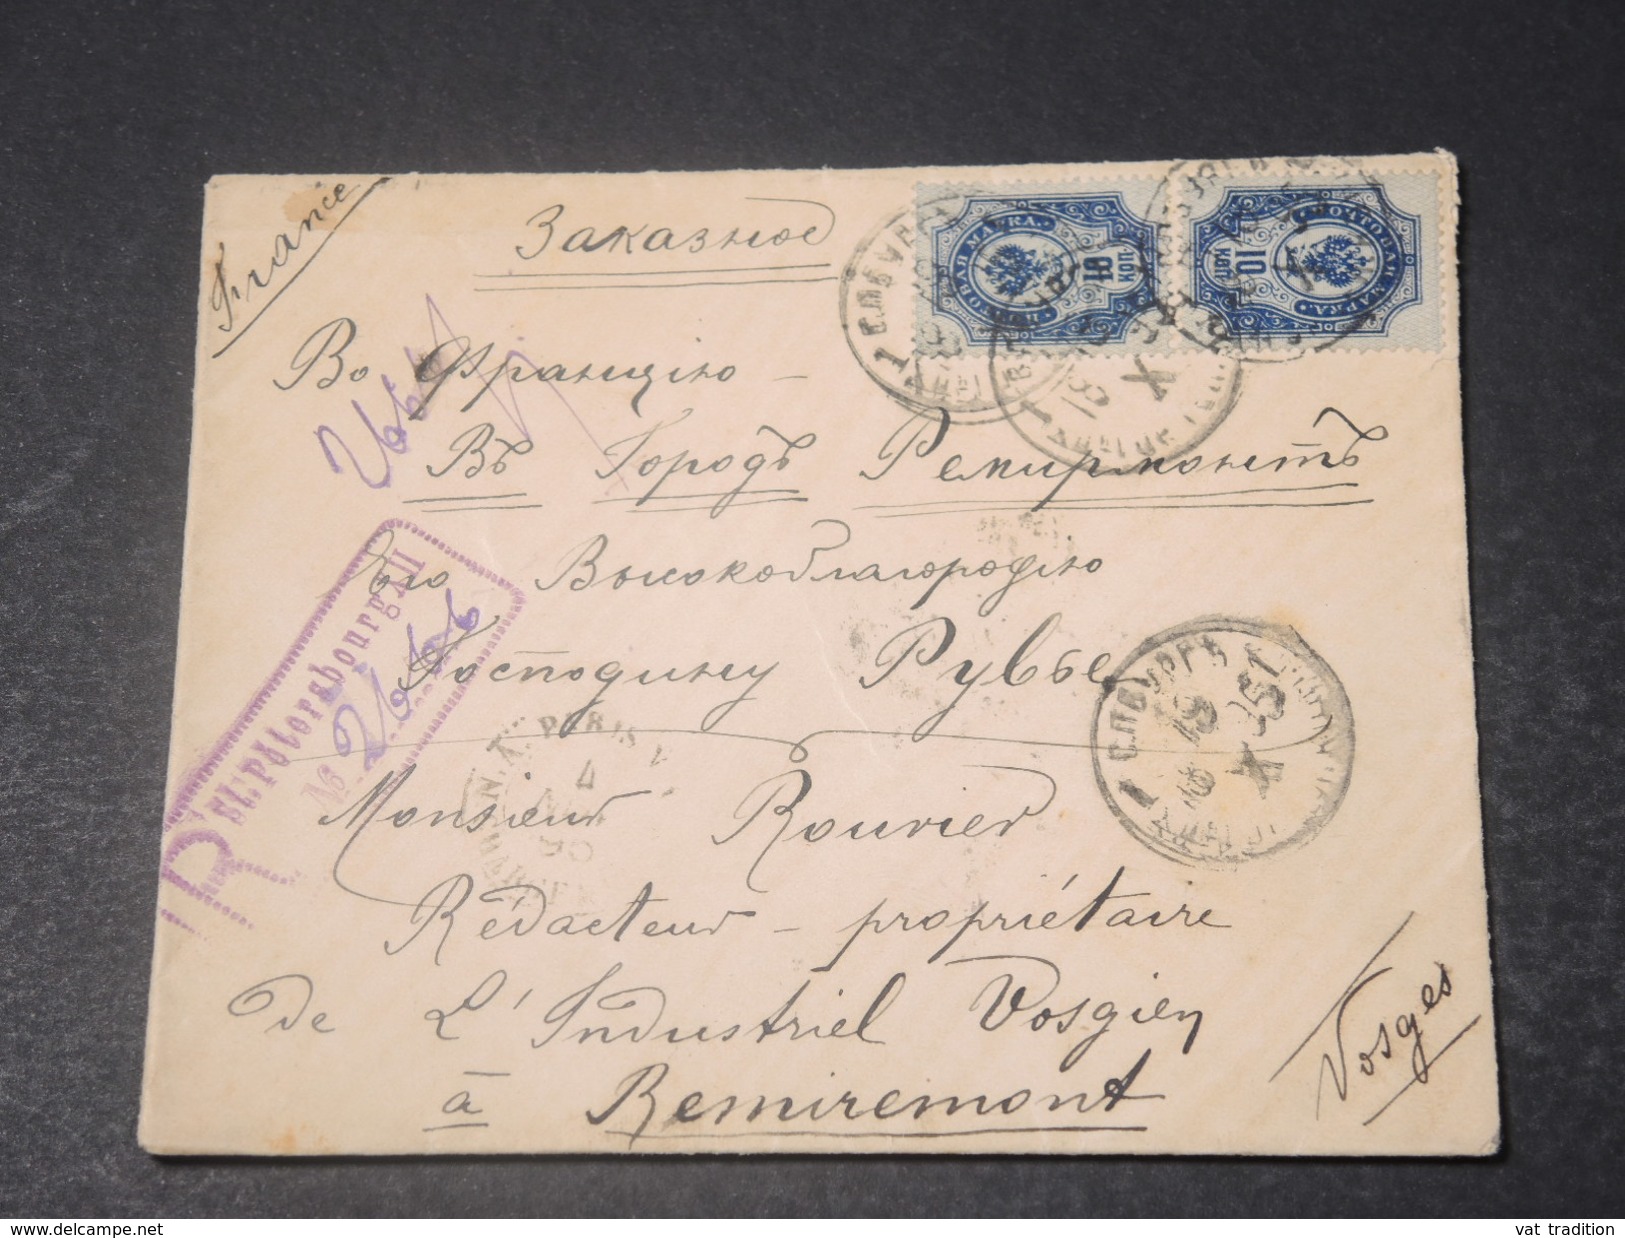 France
Заказное
Во Францію –
Въ Городъ Ремирмонтъ
Его Высокоблагородію
Господину Рувье
Monsieur Rouvier
Rédacteur – propriétaire
de L'Industriel Vosgien
à Remiremont
Vosges
R St. Pétersbourg
№ 266
ПОЧТОВАЯ МАРКА.
10 КОП.
ПОЧТОВАЯ МАРКА.
10 КОП.
1 С.П.БУРГЪ
PARIS
www.delcampe.net
vat tradition